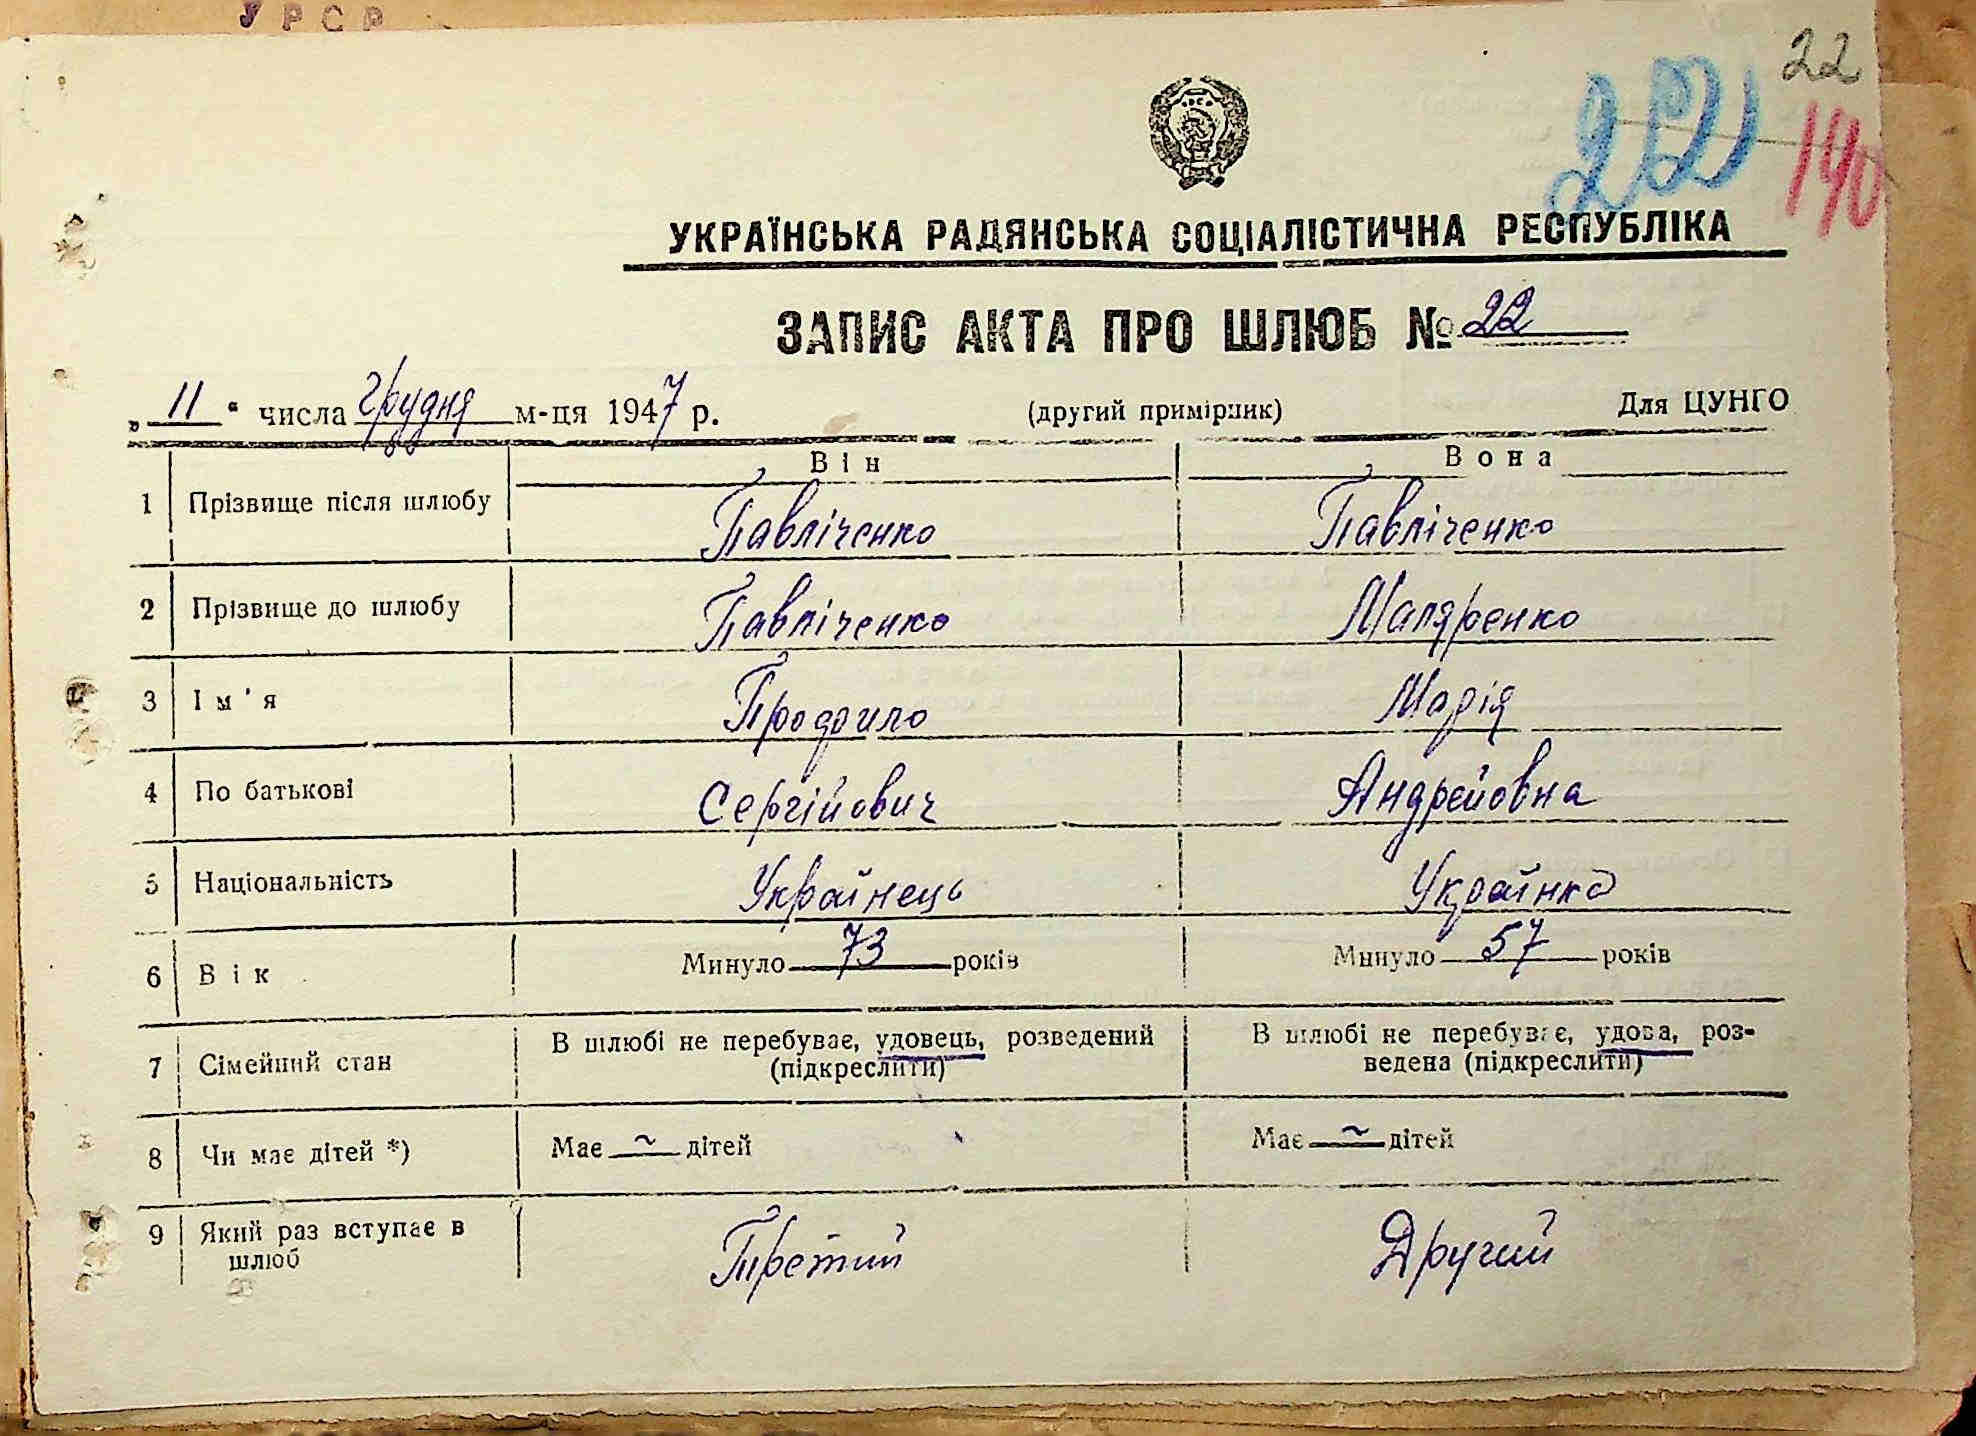 УРСР
22
22
140
УКРАЇНСЬКА РАДЯНСЬКА СОЦІАЛІСТИЧНА РЕСПУБЛІКА
ЗАПИС АКТА ПРО ШЛЮБ № 22
„ 11 “ числа грудня м-ця 1947 р. (другий примірник) Для ЦУНГО
Він Вона
1 Прізвище після шлюбу Павліченко Павліченко
2 Прізвище до шлюбу Павліченко Маляренко
3 Ім'я Марія
4 По батькові Сергійович Андрейовна
5 Національність Українець Українка
6 Вік Минуло 73 років Минуло 57 років
7 Сімейний стан В шлюбі не перебуває, удовець, розведений В шлюбі не перебуває, удова, роз-
(підкреслити) ведена (підкреслити)
8 Чи має дітей *) Має ~ дітей Має ~ дітей
9 Який раз вступає в Третий Другий
шлюб